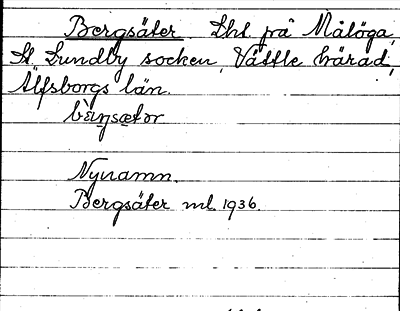 Bergsäter Lht. på Målöga,
St. Lundby socken, Vättle härad,
Älfsborgs län.
bæ̀ŋsætər
Nynamn.
Bergsäter ml. 1936.